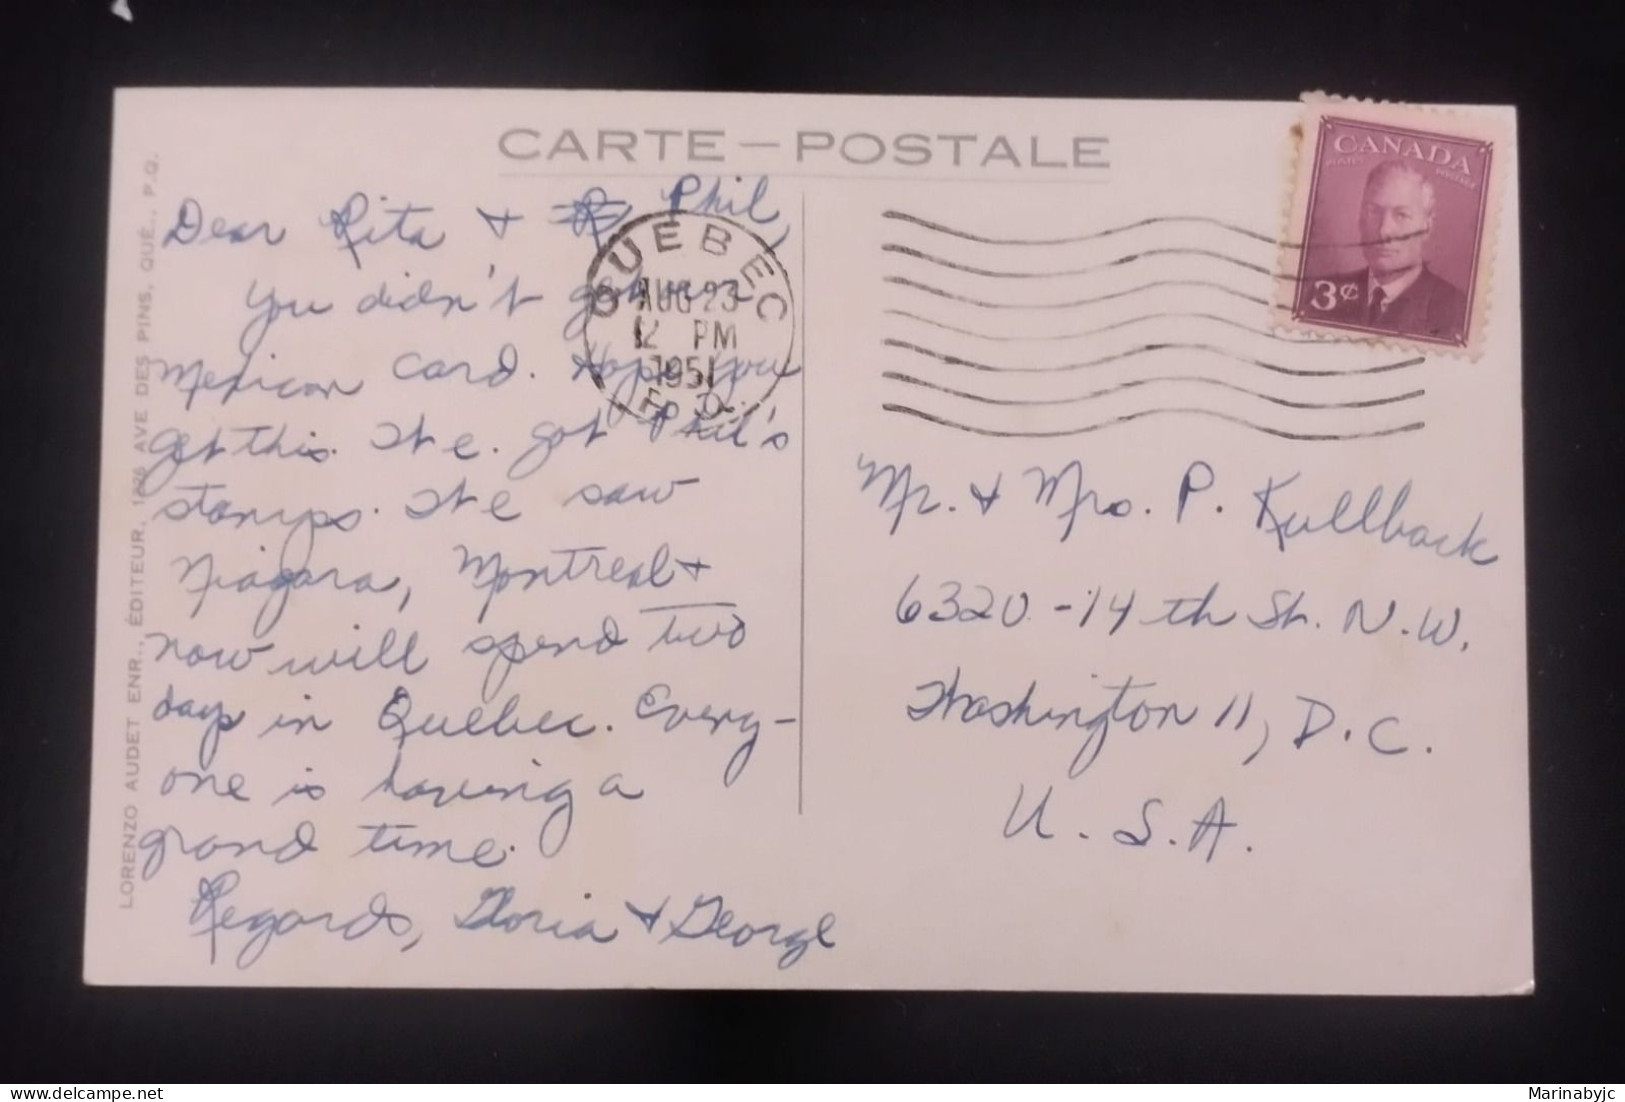 CARTE — POSTALE
CANADA
POSTES POSTAGE
3¢
QUEBEC
AUG 23
12 PM
1951
P.Q.
Dear Rita & Phil,
You didn't get
Mexican card. Hope you
get this. We got Phil's
stamps. We saw
Niagara, Montreal &
now will spend two
days in Quebec. Every-
one is having a
grand time.
Regards, Gloria & George
Mr. & Mrs. P. Kullback
6320-14th St. N.W.
Washington 11, D.C.
U.S.A.
LORENZO AUDET ENR., ÉDITEUR, AVE DES PINS, QUÉ., P.Q.
Marinabyjc